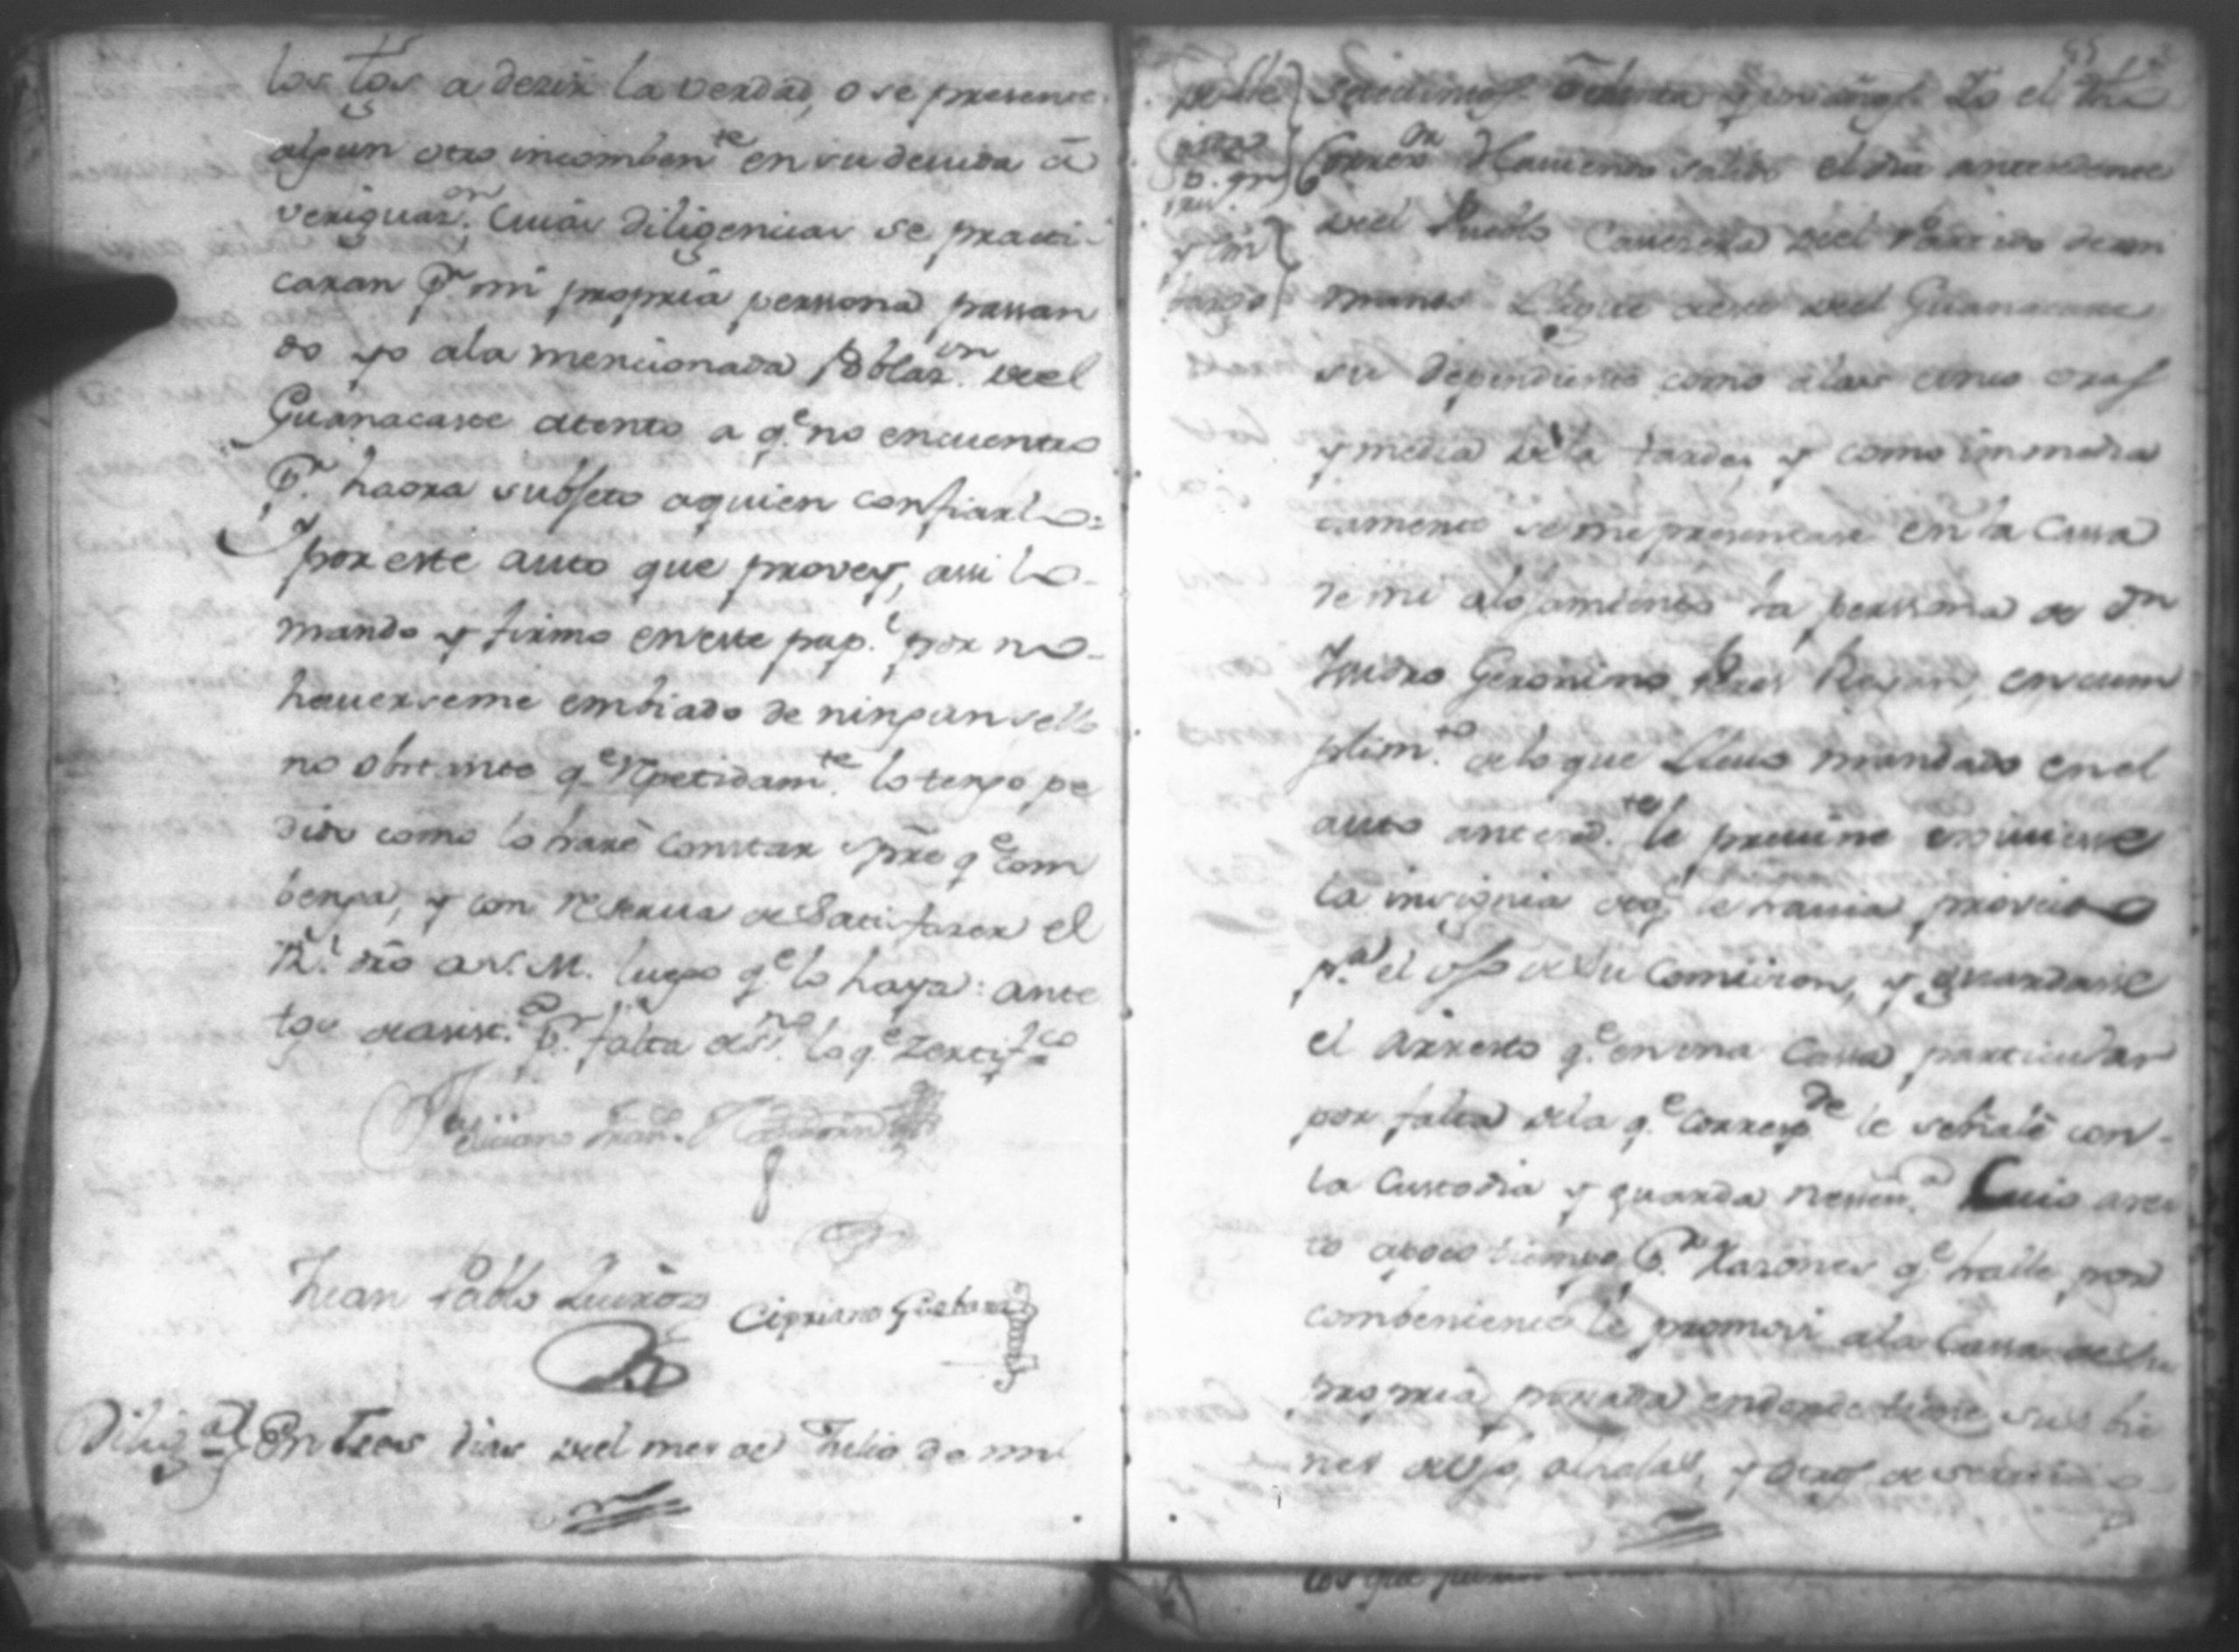 los tos a dezir la verdad, o se presente
algun otro incomben.te en su devida a
veriguaz.on; cuias diligencias se practi-
caran p.r mi propria perssona passan
do yo ala mencionada Poblaz.on del
Guanacaste atento a q.e no encuentro
P.r haora subjeto aquien confiarlo=
Y por este auto que provey, assi lo-
mando y firmo en este pap.l por no-
haverseme embiado de ningun sello
no obstante q.e repetidam.te lo tengo pe
dido como lo haré constar spre q.e com
benga, y con reserva de Satisfazer el
R.l dro a S. M. luego q.e lo haya: ante
tgos de asist.a P.r falta de S.no lo q.e Zertif.co
Feliciano Fran.co
Juan Pablo Quiros
Cipriano Guebara
Dilig.a En tres dias del mes de Julio de mil
setecientos ochenta y un años. Yo el the
Correx.or Haviendo salido el dia antecedente
del Pueblo Cavezera del Partido de mi
mando Llegué a este del Guanacaste
su dependiente como a las cinco oras
y media de la tarde, y como immedia
tamente se me presentase en la Cassa
de mi alojamiento la perssona de D.n
Isidro Geronimo Peres Reyan, en cum
plim.to de lo que Llevo mandado en el
auto anteced.te le previne exiviese
la insignia de q.e le havia proveido
p.a el uso de su Comision, y guardase
el arresto q.e en una Cassa particular
por falta de la q.e corresp.de le señalé con-
la Custodia y guarda nessess.a Cuio arres
to a poco tiempo P.r Razones q.e halle por
combeniente le promovi ala Cassa de su
propria morada en donde tiene sus bie
nes de uso, alhajas, y otros de servicio